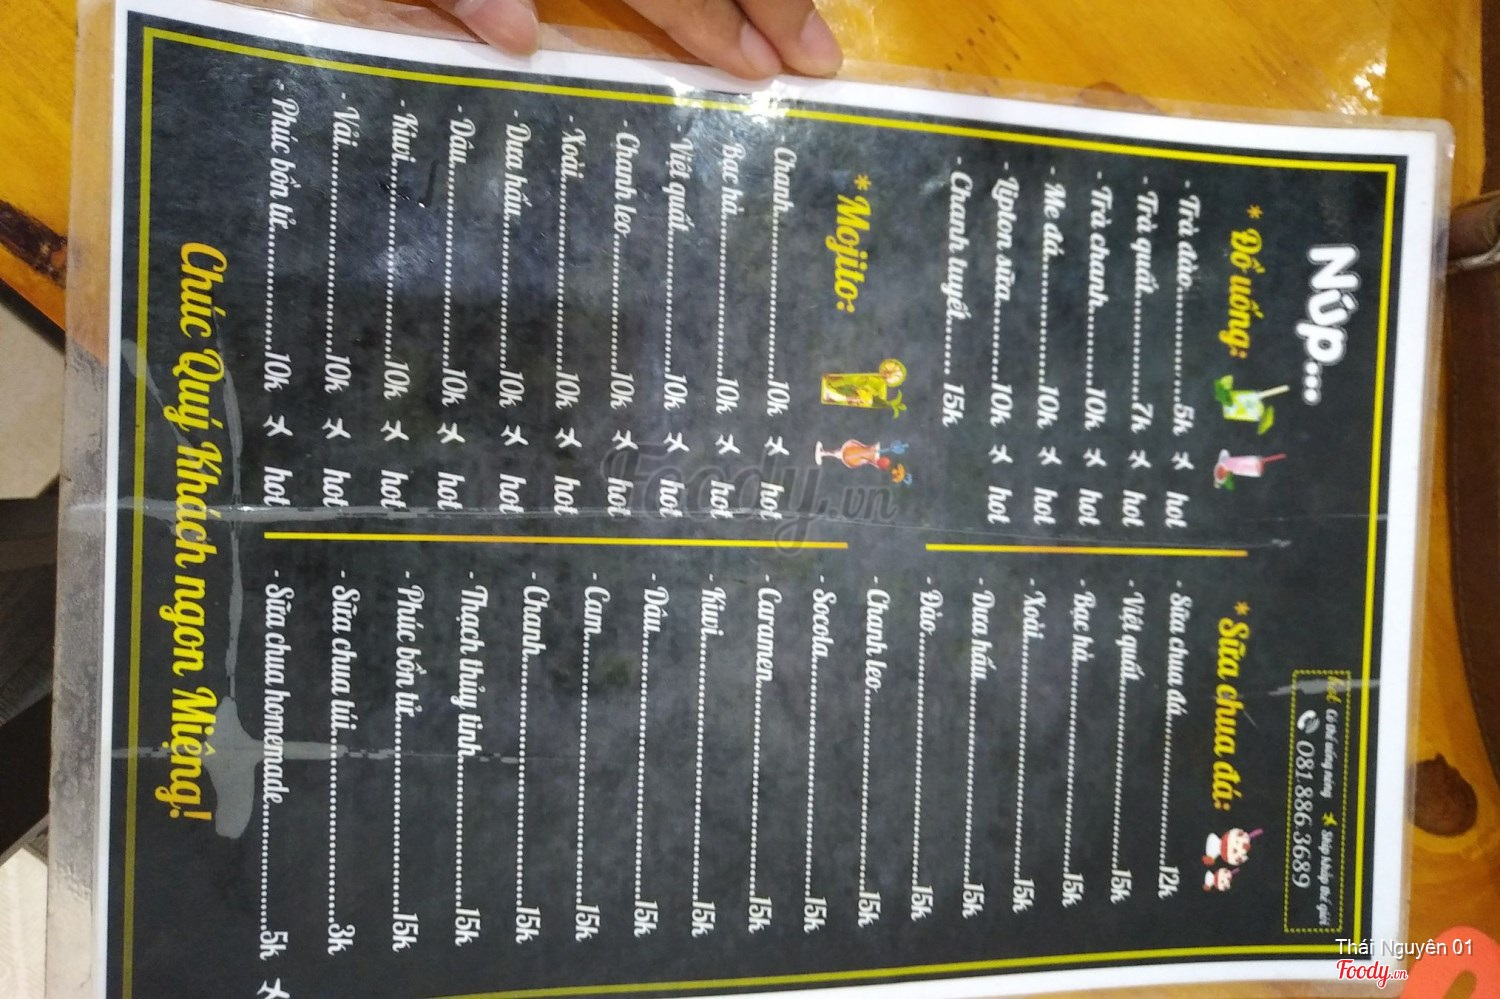 Núp...
hot Có thể uống nóng ✈ Ship khắp thế giới
081.886.3689
* Đồ uống:
- Trà đào..................5k ✈ hot
- Trà quất................7k ✈ hot
- Trà chanh............10k ✈ hot
- Me đá..................10k ✈ hot
- Lipton sữa............10k ✈ hot
- Chanh tuyết...... 15k
* Mojito:
- Chanh....................10k ✈ hot
- Bạc hà...................10k ✈ hot
- Việt quất.................10k ✈ hot
- Chanh leo...............10k ✈ hot
- Xoài.......................10k ✈ hot
- Dưa hấu.................10k ✈ hot
- Dâu........................10k ✈ hot
- Kiwi.......................10k ✈ hot
- Vải.........................10k ✈ hot
- Phúc bồn tử.............10k ✈ hot
* Sữa chua đá:
- Sữa chua đá..................12k
- Việt quất......................15k
- Bạc hà..........................15k
- Xoài..............................15k
- Dưa hấu........................15k
- Đào...............................15k
- Chanh leo......................15k
- Socola............................15k
- Caramen.......................15k
- Kiwi..............................15k
- Dâu...............................15k
- Cam..............................15k
- Chanh............................15k
- Thạch thủy tinh..............15k
- Phúc bồn tử....................15k
- Sữa chua túi...................3k
- Sữa chua homemade..............5k ✈
Chúc Quý Khách ngon Miệng!
Foody.vn
Thái Nguyên 01
Foody.vn